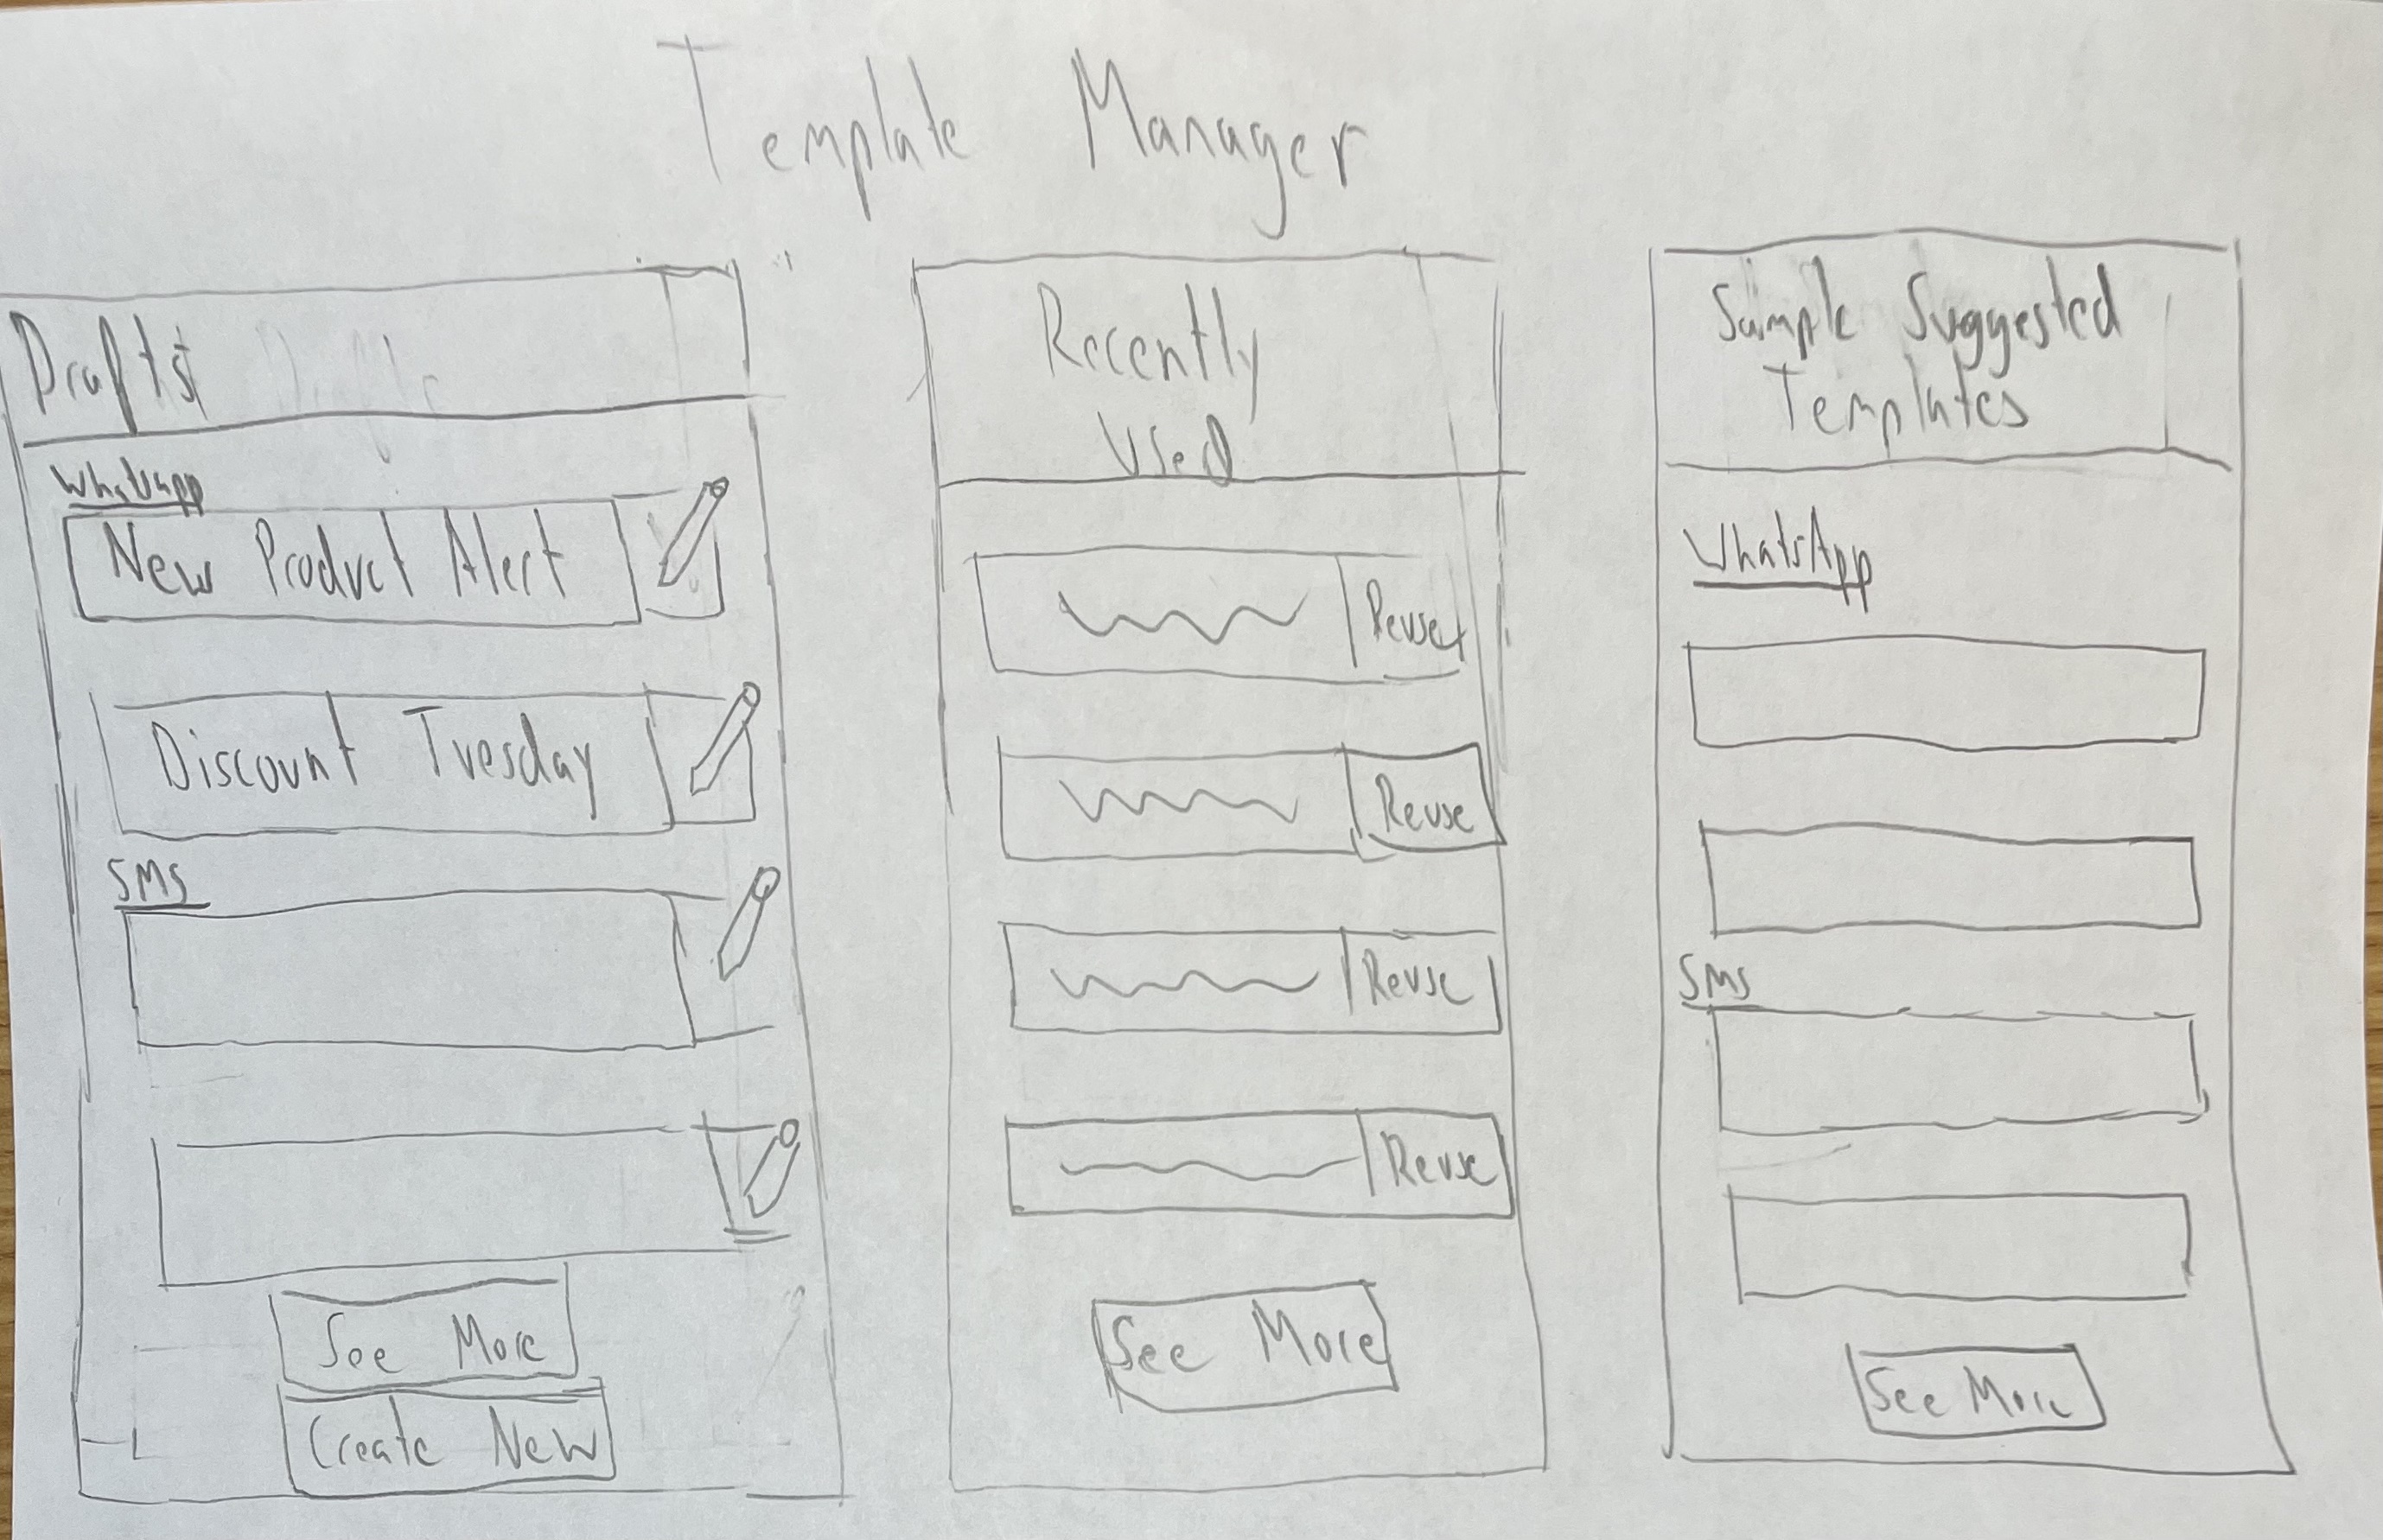 Template Manager
Drafts
Whatsapp
New Product Alert
Discount Tuesday
SMS
See More
Create New
Recently
Used
Reuse
Reuse
Reuse
Reuse
See More
Sample Suggested
Templates
WhatsApp
SMS
See More